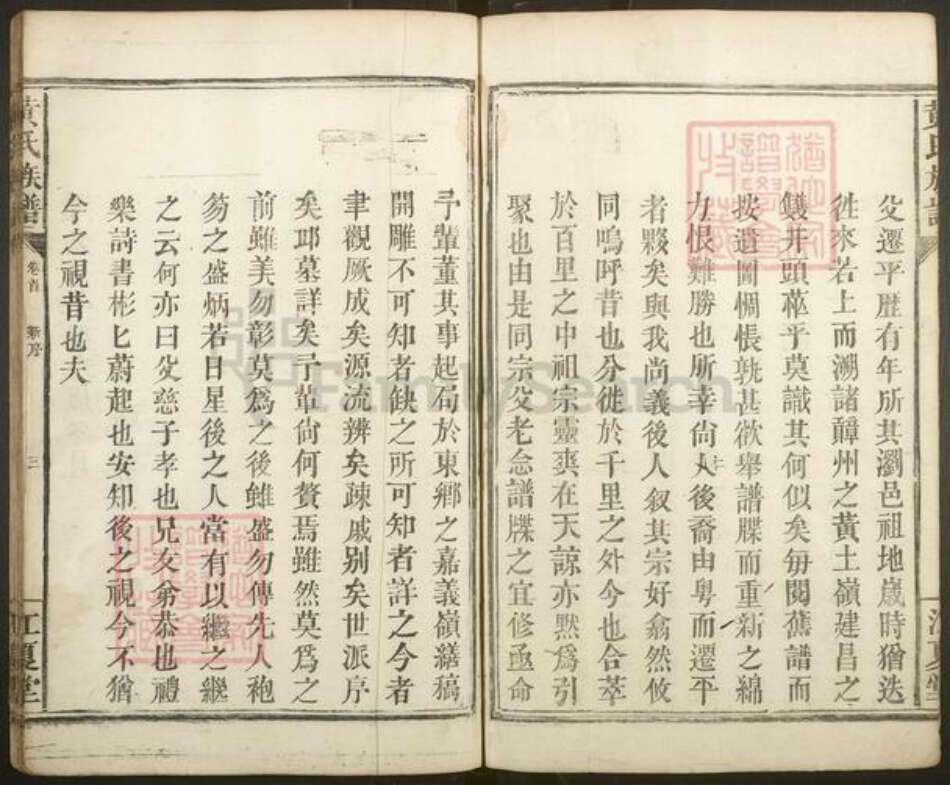 黃氏族譜
江夏堂
父遷平歷有年所其瀏邑祖地歲時猶迭
徃來若上而溯諸贛州之黃土嶺建昌之
雙井頭蓝乎莫識其何似矣每閱舊譜而
按遺圖惆悵孰甚欲舉譜牒而重新之綿
力恨難勝也所幸尙人後裔由粤而遷平
者夥矣與我尚義後人叙其宗好翕然攸
同嗚呼昔也分徙於千里之外今也合萃
於百里之中祖宗靈爽在天諒亦默爲引
聚也由是同宗父老念譜牒之宜修亟命
予輩董其事起局於東鄉之嘉義嶺繕稿
開雕不可知者缺之所可知者詳之今者
聿觀厥成矣源流辨矣疎戚别矣世派序
矣邱墓詳矣予輩尙何贅焉雖然莫爲之
前雖美勿彰莫爲之後雖盛勿傳先人袍
笏之盛炳若日星後之人當有以繼之繼
之云何亦曰父慈子孝也兄友弟恭也禮
樂詩書彬匕蔚起也安知後之視今不猶
今之視昔也夫
黃氏族譜
卷首
新序
三
江夏堂
FamilySearch